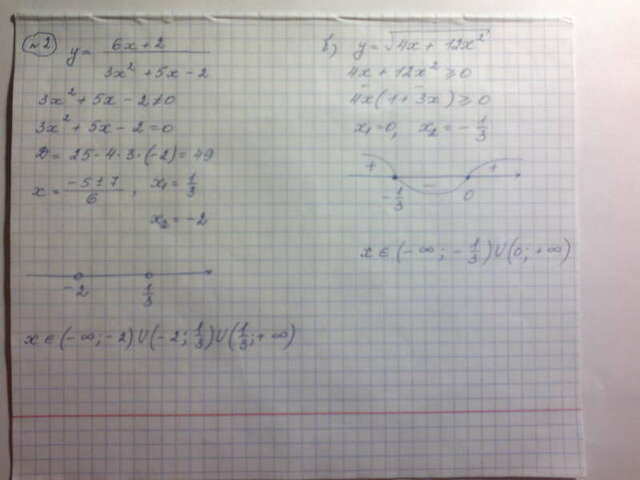 №2 y = (6x+2)/(3x²+5x-2)
3x²+5x-2≠0
3x²+5x-2=0
D = 25-4·3·(-2)=49
x = (-5±7)/6, x₁ = 1/3
x₂ = -2
-2 1/3
x∈(-∞;-2)∪(-2;1/3)∪(1/3;+∞)
б) y = √(4x+12x²)
4x+12x²≥0
4x(1+3x)≥0
x₁=0, x₂=-1/3
+ - +
-1/3 0
x∈(-∞;-1/3)∪(0;+∞)